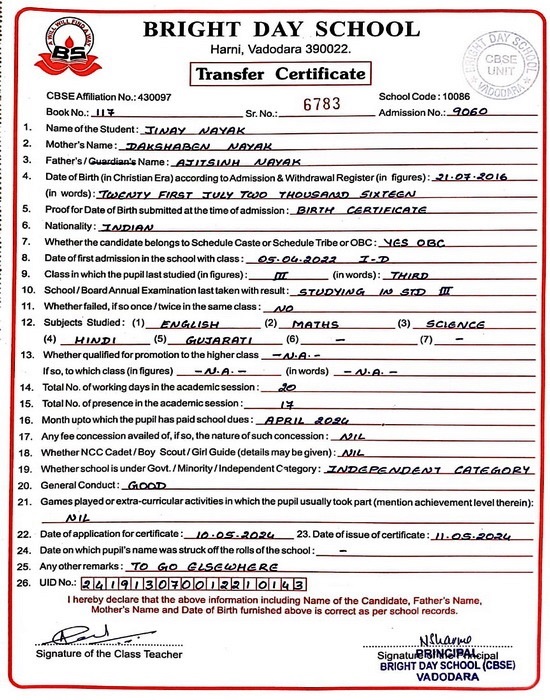 A WILL WILL FIND A WAY
BS
BRIGHT DAY SCHOOL
Harni, Vadodara 390022.
Transfer Certificate
BRIGHT DAY SCHOOL
CBSE
UNIT
VADODARA
CBSE Affiliation No.: 430097 School Code : 10086
Book No.: 117 Sr. No.: 6783 Admission No.: 9060
1. Name of the Student : JINAY NAYAK
2. Mother's Name : DAKSHABEN NAYAK
3. Father's / Guardian's Name : AJITSINH NAYAK
4. Date of Birth (in Christian Era) according to Admission & Withdrawal Register (in figures) : 21-07-2016
(in words) : TWENTY FIRST JULY TWO THOUSAND SIXTEEN
5. Proof for Date of Birth submitted at the time of admission : BIRTH CERTIFICATE
6. Nationality : INDIAN
7. Whether the candidate belongs to Schedule Caste or Schedule Tribe or OBC : YES OBC
8. Date of first admission in the school with class : 05-04-2022 I-D
9. Class in which the pupil last studied (in figures) : III (in words) : THIRD
10. School / Board Annual Examination last taken with result : STUDYING IN STD III
11. Whether failed, if so once / twice in the same class : NO
12. Subjects Studied : (1) ENGLISH (2) MATHS (3) SCIENCE
(4) HINDI (5) GUJARATI (6) - (7) -
13. Whether qualified for promotion to the higher class -N.A.-
If so, to which class (in figures) -N.A.- (in words) -N.A.-
14. Total No. of working days in the academic session : 20
15. Total No. of presence in the academic session : 17
16. Month upto which the pupil has paid school dues : APRIL 2024
17. Any fee concession availed of, if so, the nature of such concession : NIL
18. Whether NCC Cadet / Boy Scout / Girl Guide (details may be given) : NIL
19. Whether school is under Govt. / Minority / Independent Category : INDEPENDENT CATEGORY
20. General Conduct : GOOD
21. Games played or extra-curricular activities in which the pupil usually took part (mention achievement level therein) :
NIL
22. Date of application for certificate : 10-05-2024 23. Date of issue of certificate : 11-05-2024
24. Date on which pupil's name was struck off the rolls of the school : -
25. Any other remarks : TO GO ELSEWHERE
26. UID No.: 241913070012210143
I hereby declare that the above information including Name of the Candidate, Father's Name,
Mother's Name and Date of Birth furnished above is correct as per school records.
NSharma
Signature of the Class Teacher Signature of the Principal
PRINCIPAL
BRIGHT DAY SCHOOL (CBSE)
VADODARA